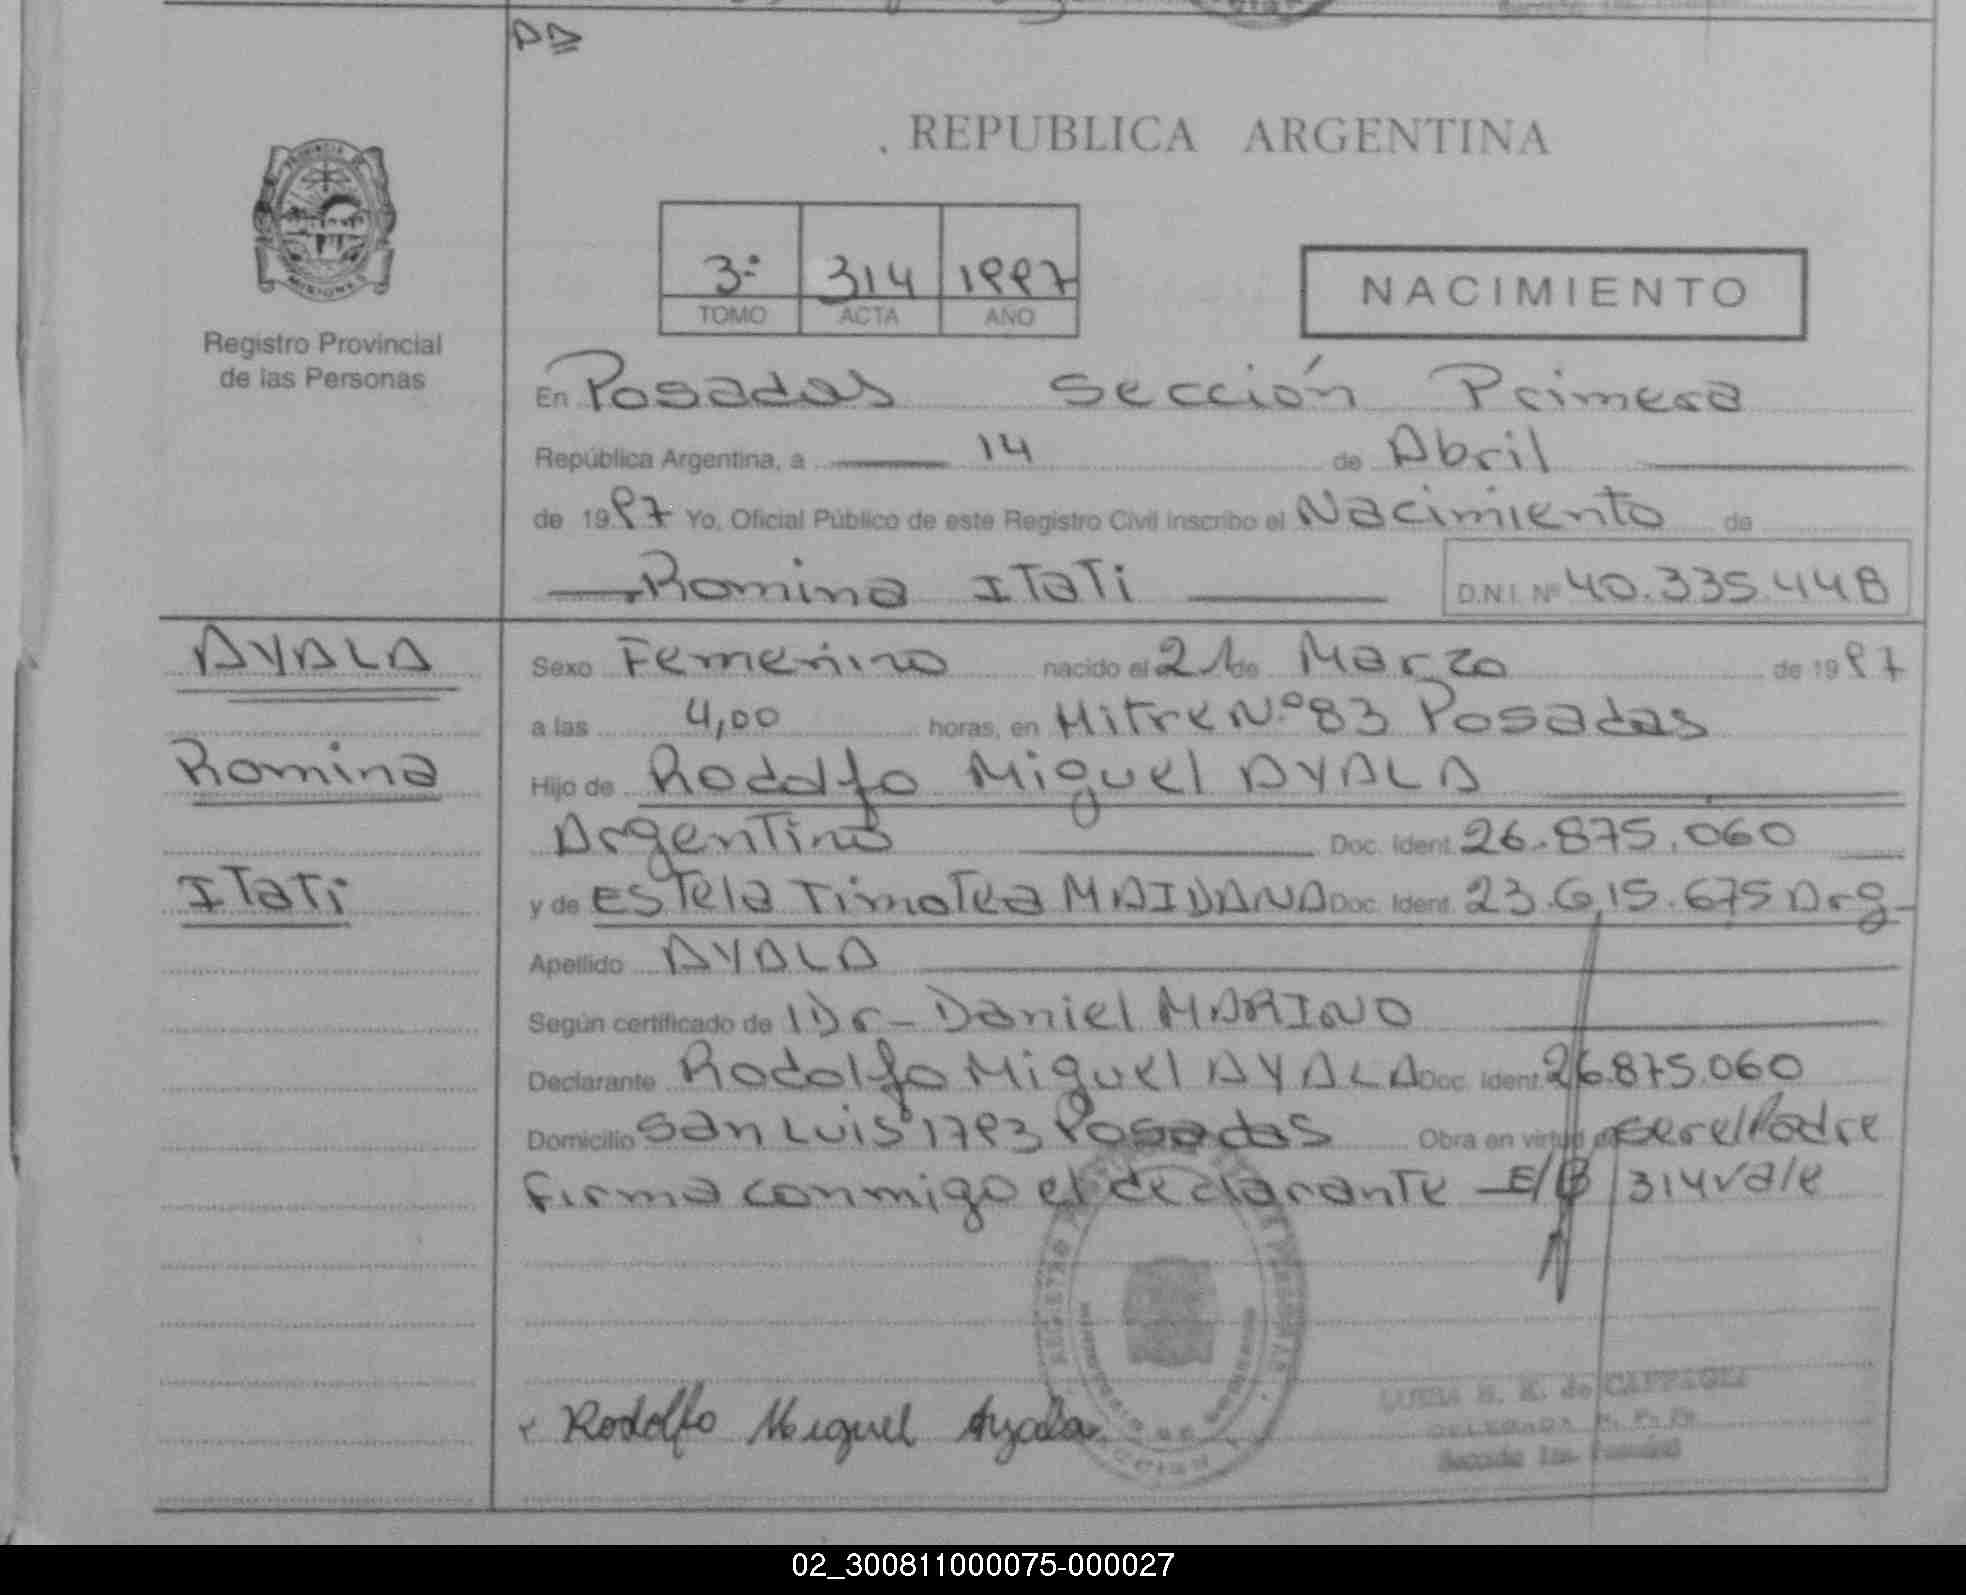 DD
REPUBLICA ARGENTINA
3º 314 1997
TOMO ACTA AÑO
NACIMIENTO
Registro Provincial
de las Personas
En Posadas Sección Primera
República Argentina, a 14 de Abril
de 1997 Yo, Oficial Público de este Registro Civil inscribo el Nacimiento de
Romina Itati D.N.I. Nº 40.335.448
AYALA
Romina
Itati
Sexo Femenino nacido el 21 de Marzo de 1997
a las 4,00 horas, en Mitre Nº 83 Posadas
Hijo de Rodolfo Miguel AYALA
Argentino Doc. Ident. 26.875.060
y de Estela Timotea MAIDANA Doc. Ident. 23.615.675 Arg
Apellido AYALA
Según certificado de Dr- Daniel MARINO
Declarante Rodolfo Miguel AYALA Doc. Ident. 26.875.060
Domicilio San Luis 1793 Posadas Obra en virtud de ser el Padre
Firma conmigo el declarante - E/B 314 vale
Rodolfo Miguel Ayala
02_300811000075-000027